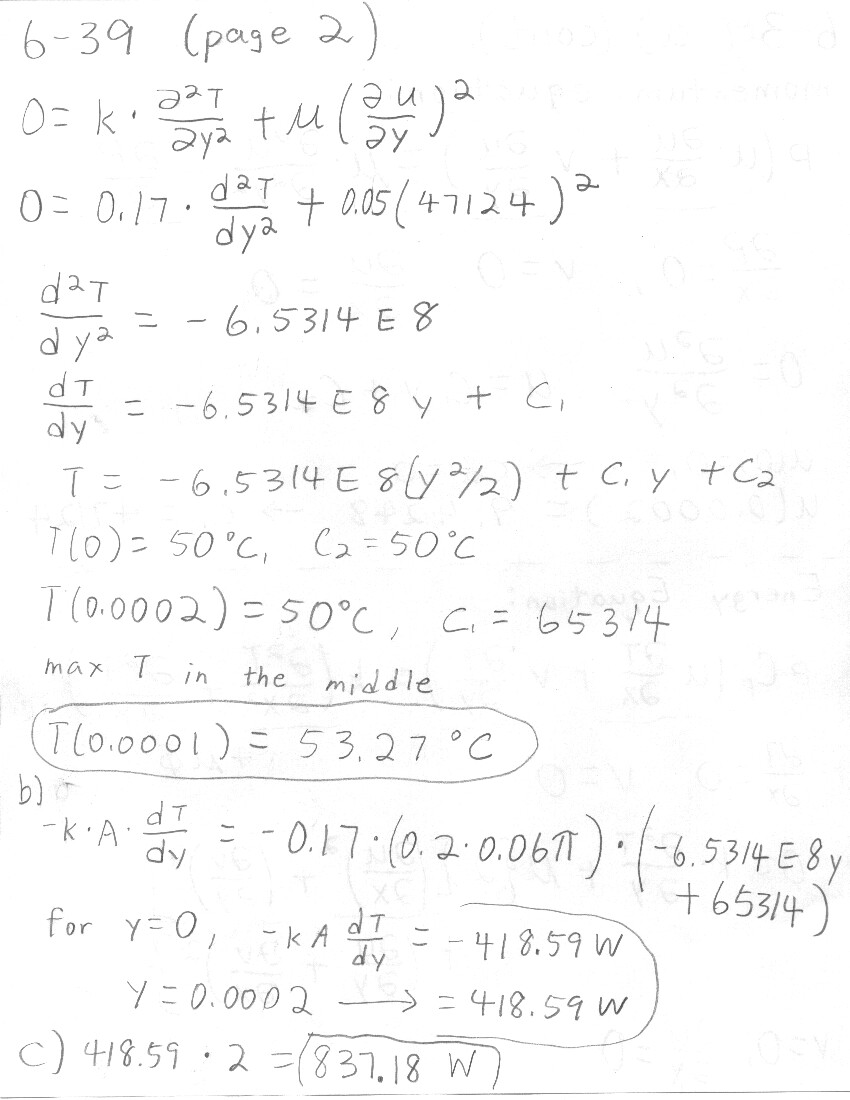 6-39 (page 2)
0 = k · ∂²T/∂y² + μ(∂u/∂y)²
0 = 0.17 · d²T/dy² + 0.05(47124)²
d²T/dy² = -6.5314 E 8
dT/dy = -6.5314 E 8 y + C₁
T = -6.5314 E 8(y²/2) + C₁ y + C₂
T(0) = 50°C, C₂ = 50°C
T(0.0002) = 50°C, C₁ = 65314
max T in the middle
T(0.0001) = 53.27 °C
b)
-k·A· dT/dy = -0.17·(0.2·0.06π)·(-6.5314 E 8 y
+ 65314)
for y=0, -kA dT/dy = -418.59 W
y = 0.0002 → = 418.59 W
c) 418.59 · 2 = 837.18 W